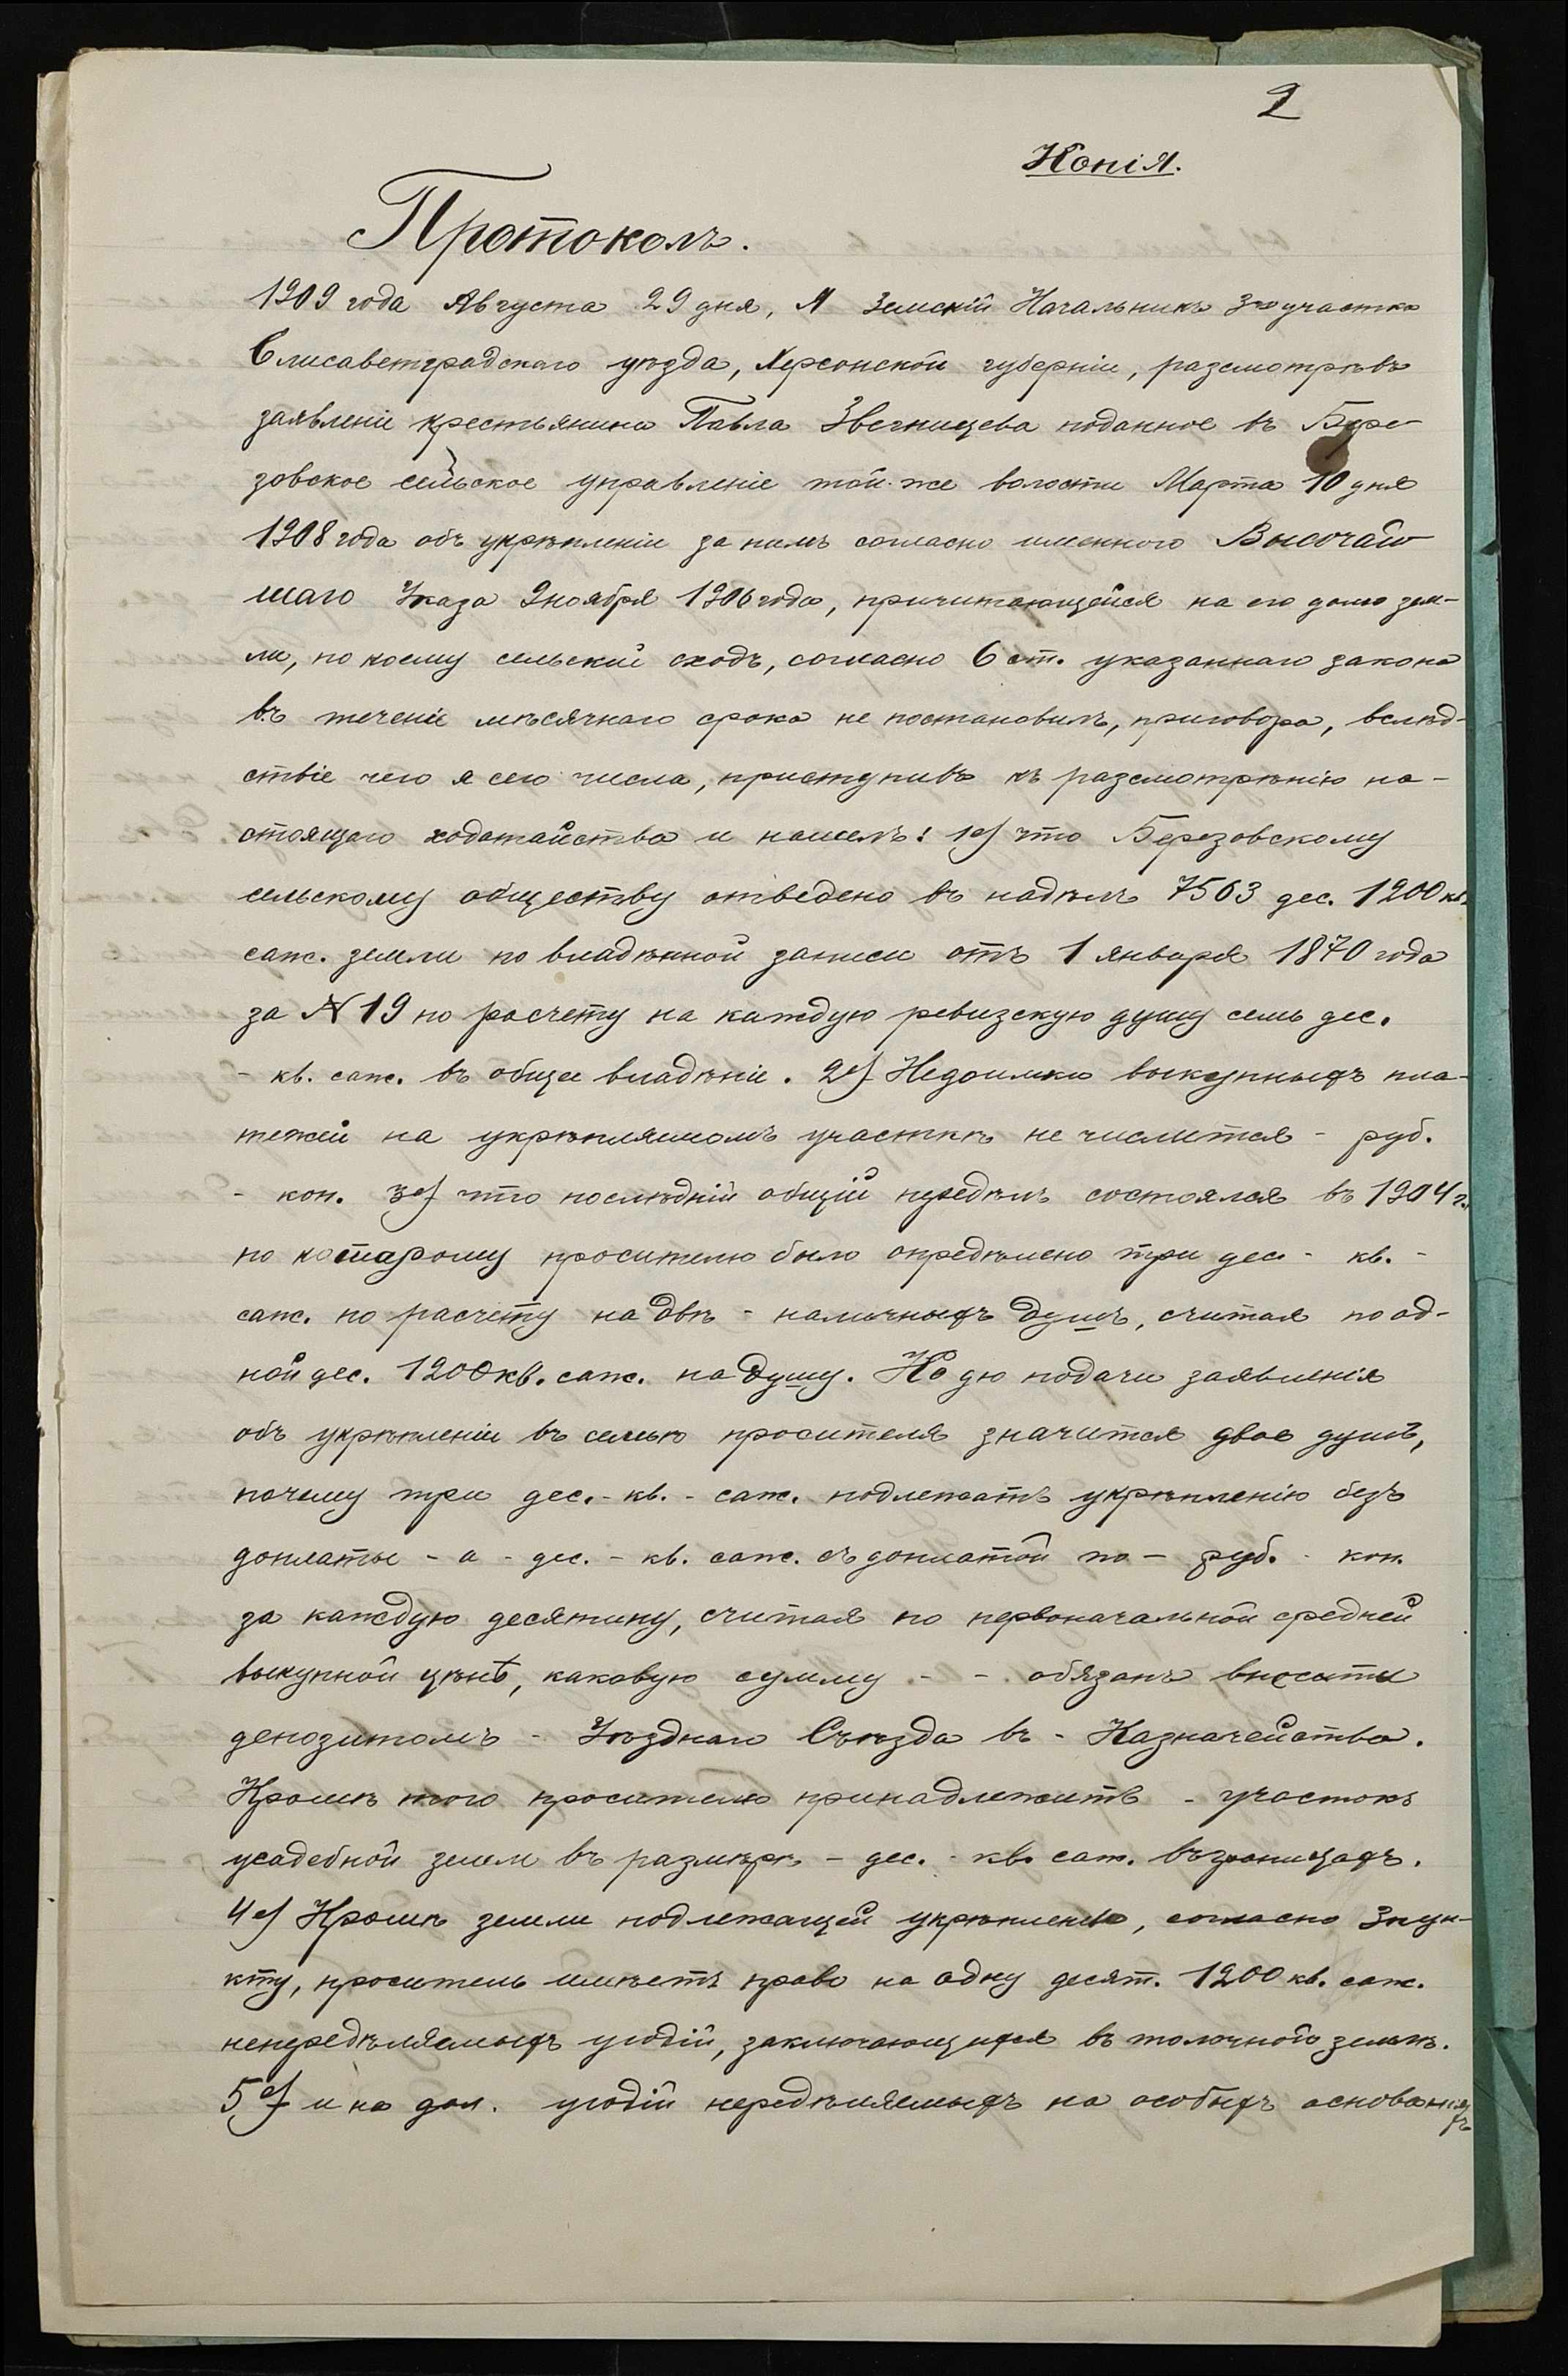 2
Копія.
Протоколъ.
1909 года Августа 29 дня, Я Земскій Начальникъ 3го участка
Елисаветградскаго уѣзда, Херсонской губерніи, разсмотрѣвъ
заявленіе крестьянина Павла поданное въ Бере-
зовское сельское управленіе той-же волости Марта 10 дня
1908 года объ укрѣпленіи за нимъ согласно именного Высочай-
шаго Указа 9 ноября 1906 года, причитающейся на его долю зем-
ли, по коему сельскій сходъ, согласно 6 ст. указаннаго закона
въ теченіе мѣсячнаго срока не постановилъ, приговора, вслѣд-
ствіе чего я сего числа, приступивъ къ разсмотрѣнію на-
стоящаго ходатайства и нашелъ: 1е) что Березовскому
сельскому обществу отведено въ надѣлъ 7503 дес. 1200 кв.
саж. земли по владѣнной записи отъ 1 января 1870 года
за № 19 по расчету на каждую ревизскую душу семь дес.
- кв. саж. въ общее владѣніе. 2е) Недоимки выкупныхъ пла-
тежей на укрѣпляемомъ участкѣ не числится - руб.
- коп. 3е) что послѣдній общій передѣлъ состоялся въ 1904 г.,
по которому просителю было опредѣлено три дес - кв. -
саж. по расчету на двѣ - наличныхъ душъ, считая по од-
ной дес. 1200 кв. саж. на душу. Ко дню подачи заявленія
объ укрѣпленіи въ семью просителя значится двое душъ,
почему три дес. - кв. - саж. подлежатъ укрѣпленію безъ
доплаты - а - дес. - кв. саж. съ доплатой по - руб. - коп.
за каждую десятину, считая по первоначальной средней
выкупной цѣнѣ, каковую сумму - - обязанъ вносити
депозитомъ - Уѣзднаго Съѣзда въ - Казначейство.
Кромѣ того просителю принадлежитъ - участокъ
усадебной земли въ размѣрѣ - дес. - кв. саж. въ границахъ.
4е) Кромѣ земли подлежащей укрѣпленію, согласно 3 пун-
кту, проситель имѣетъ право на одну десят. 1200 кв. саж.
непередѣляемыхъ угодій, заключающихся въ толочной землѣ.
5е) и на дол. угодій передѣляемыхъ на особыхъ основаніяхъ